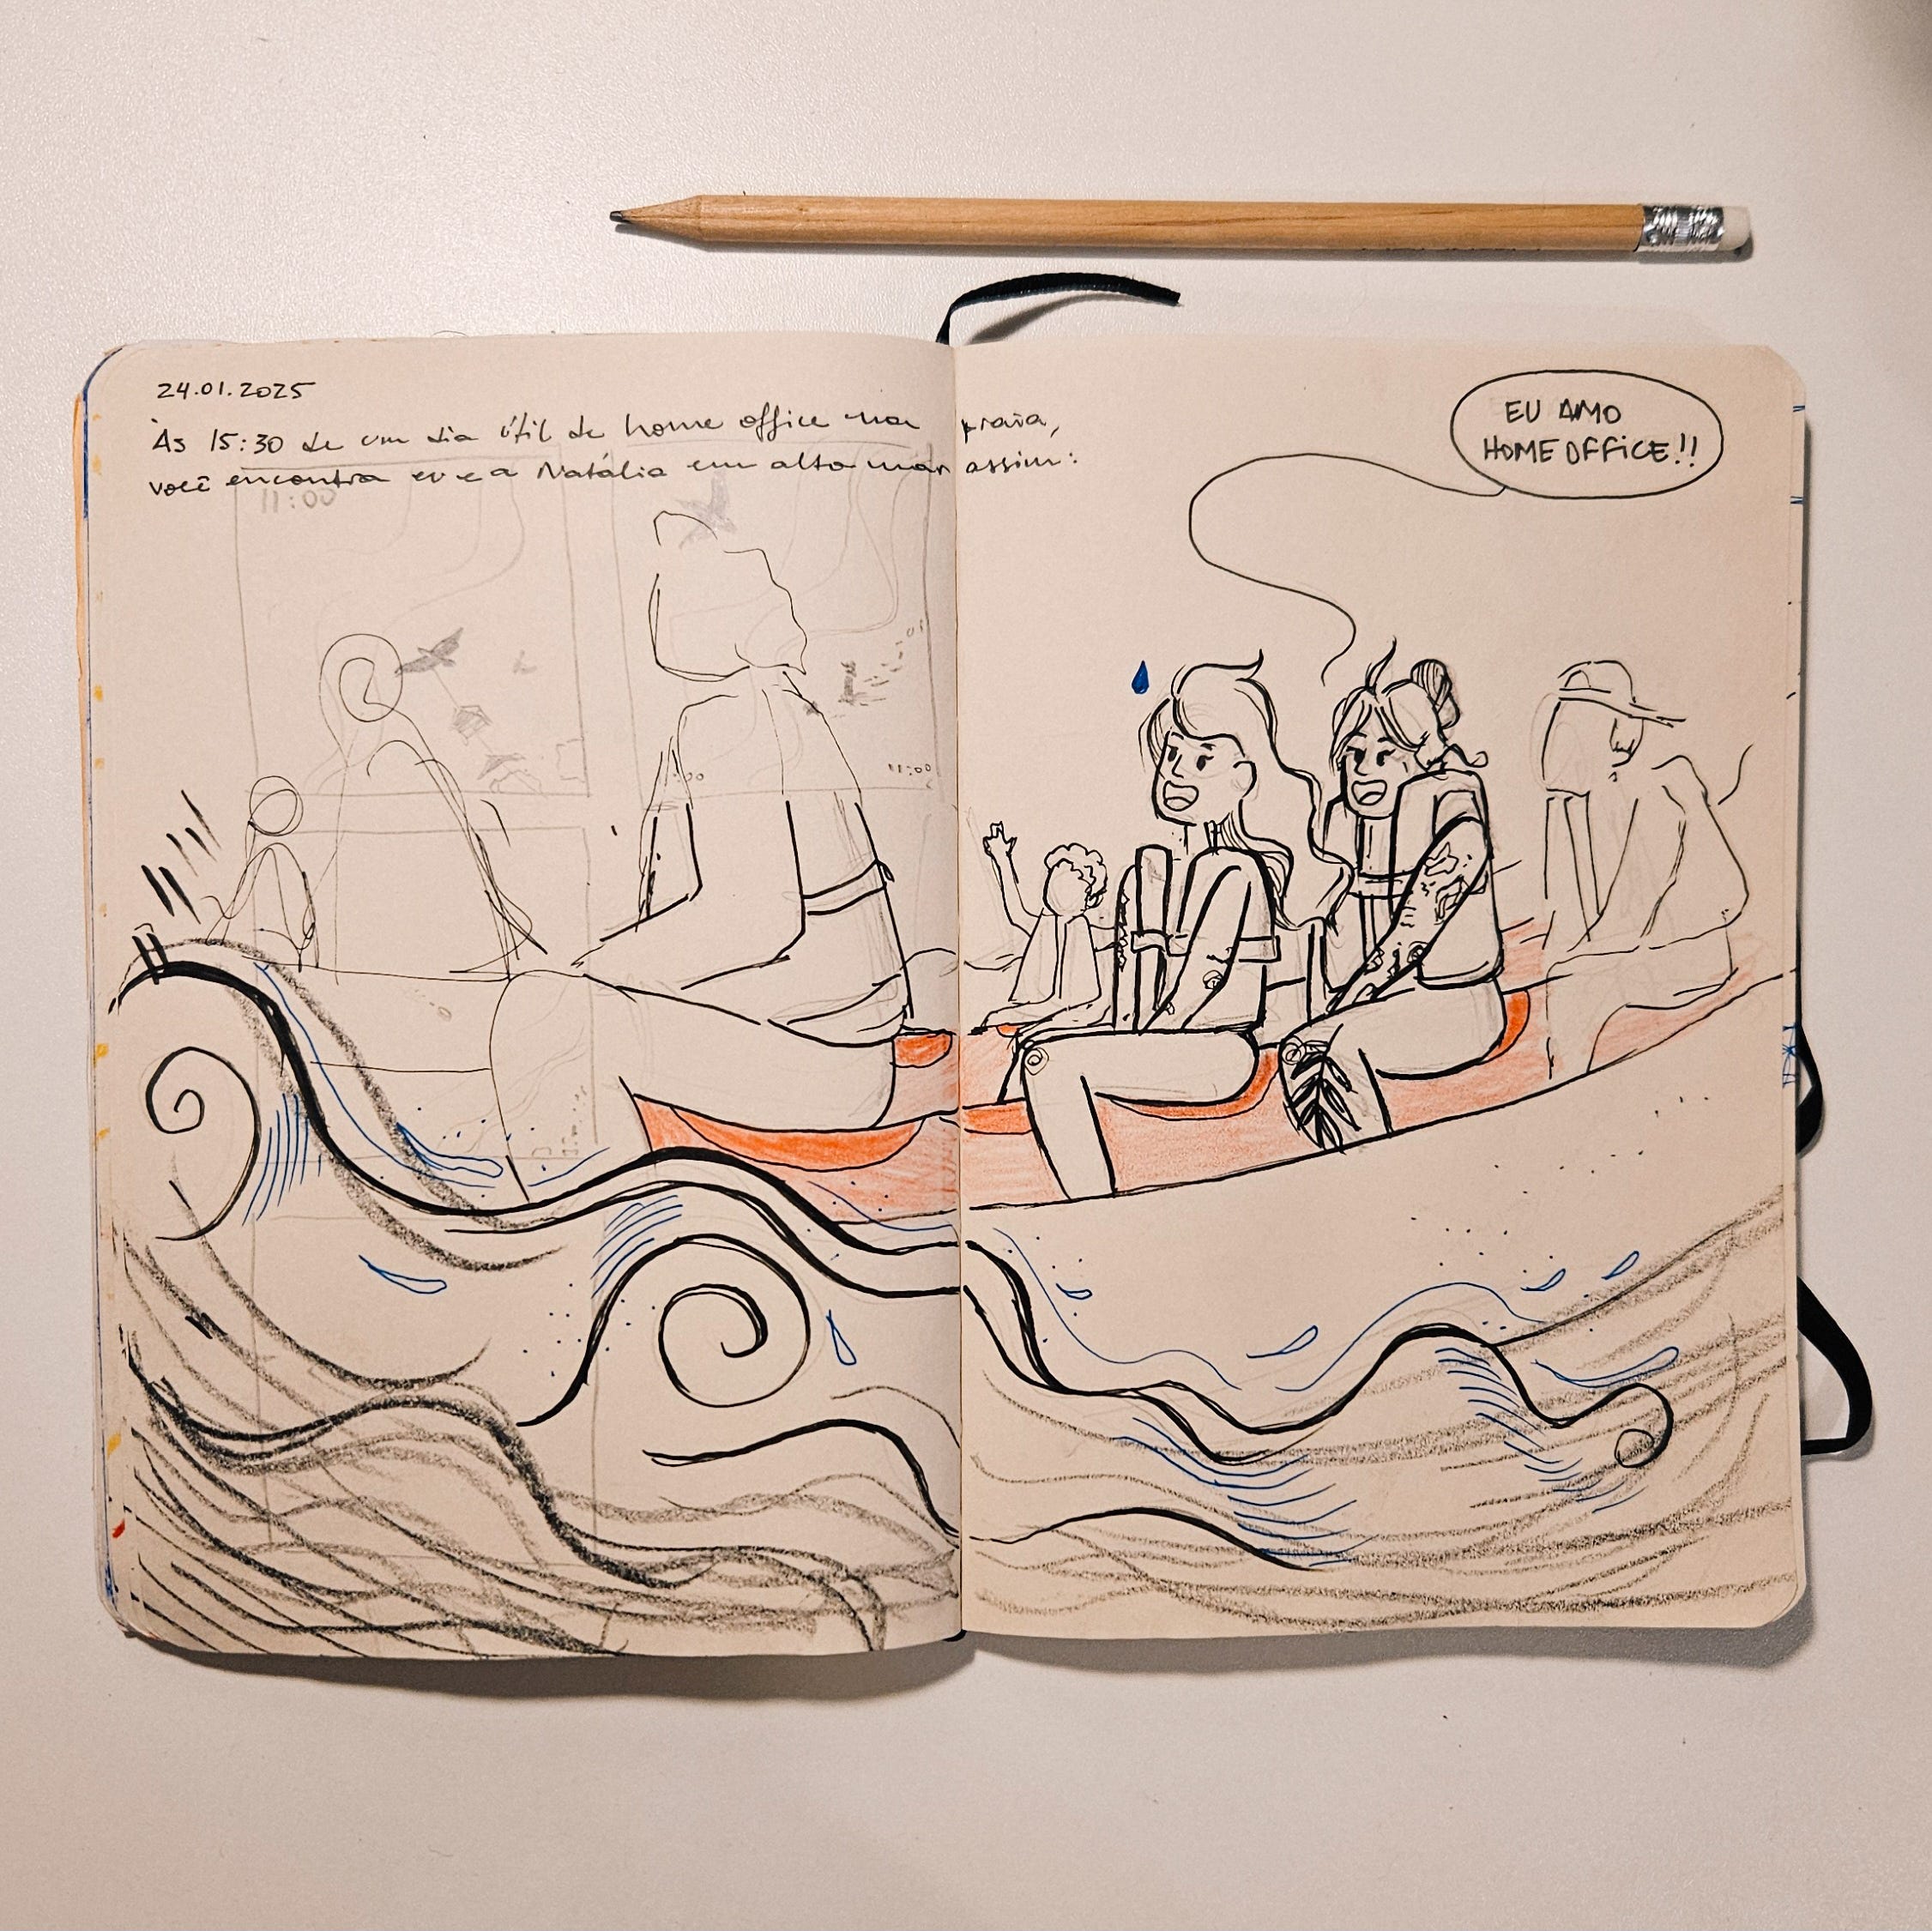 24.01.2025
Às 15:30 de um dia útil de home office na praia,
você encontra eu e a Natália em alto mar assim:
EU AMO
HOME OFFICE!!
11:00